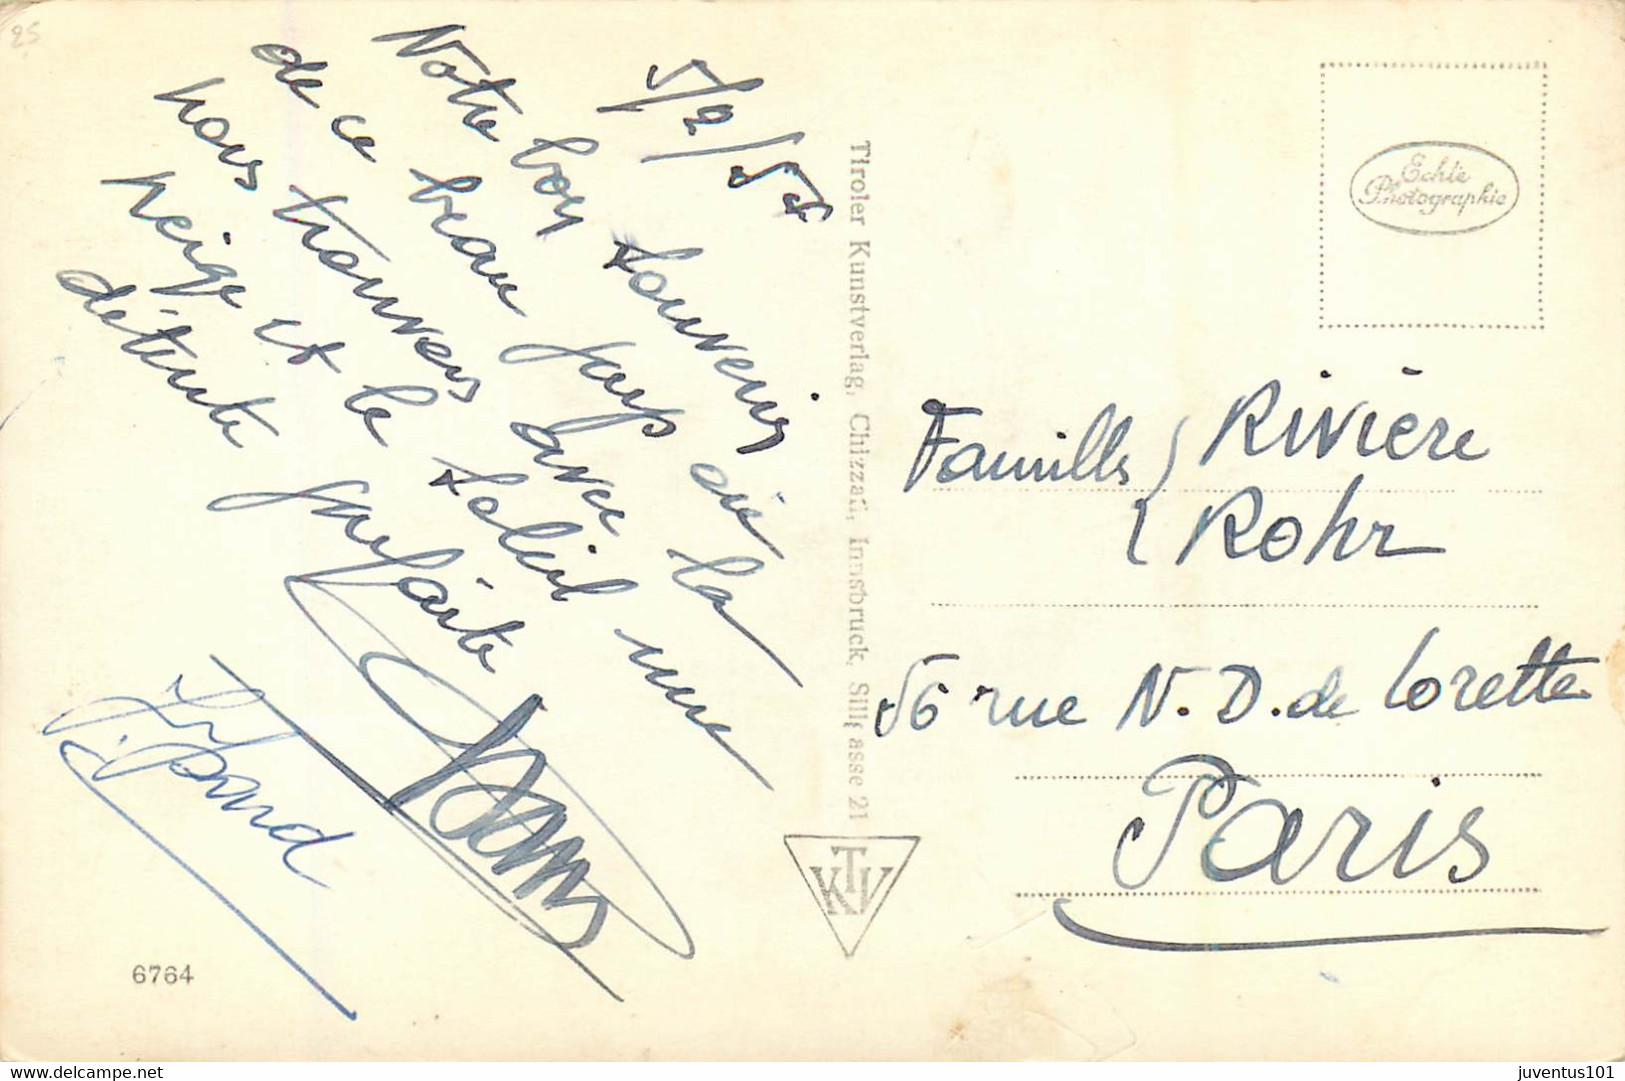 25
5/2/54
Notre bon souvenir
de ce beau pays où
nous trouvons avec la
neige et le soleil une
détente parfaite
Tiroler Kunstverlag, Chizzali, Innsbruck, Sillgasse 21
KTV
6764
Echte
Photographie
Famille Rivière
Rohr
56 rue N.D. de Lorette
Paris
juventus101